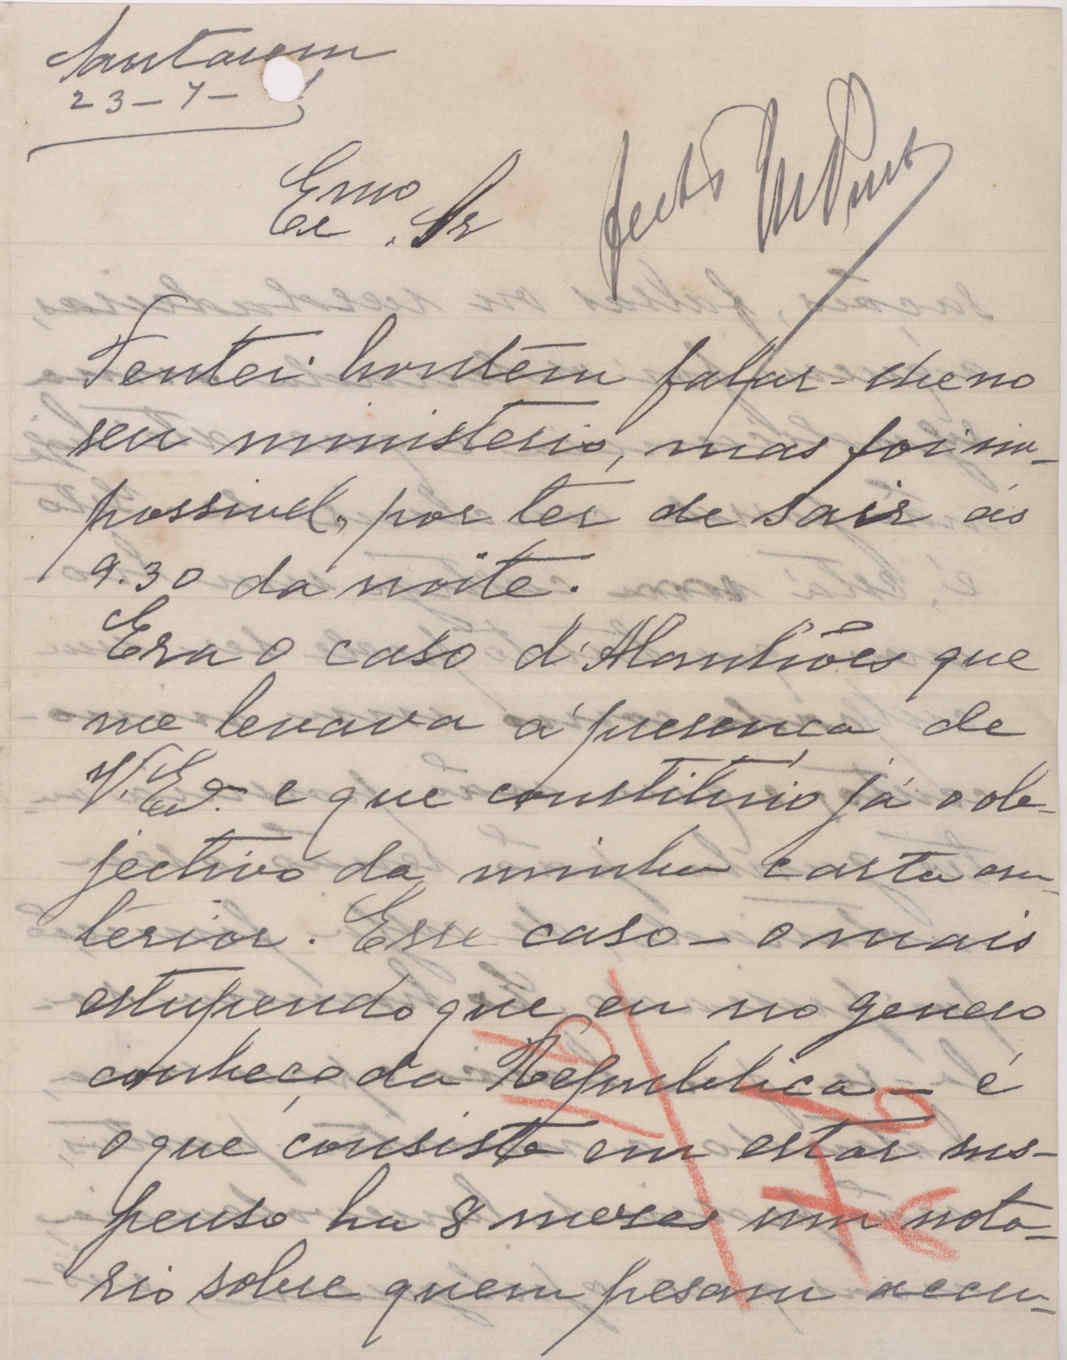 Santarem
23-7-
Exmo Sr
Tentei hontem falar-lhe no
seu ministerio, mas foi im-
possivel, por ter de sair ás
9.30 da noite.
Era o caso d'Alanhões que
me levava á presença de
V. Exª. e que constituio já o ob-
jectivo da minha carta an-
terior. Esse caso - o mais
estupendo que eu no genero
conheço da Republica - é
o que consiste em estar sus-
penso ha 8 meses um nota-
rio sobre quem pesam accu-